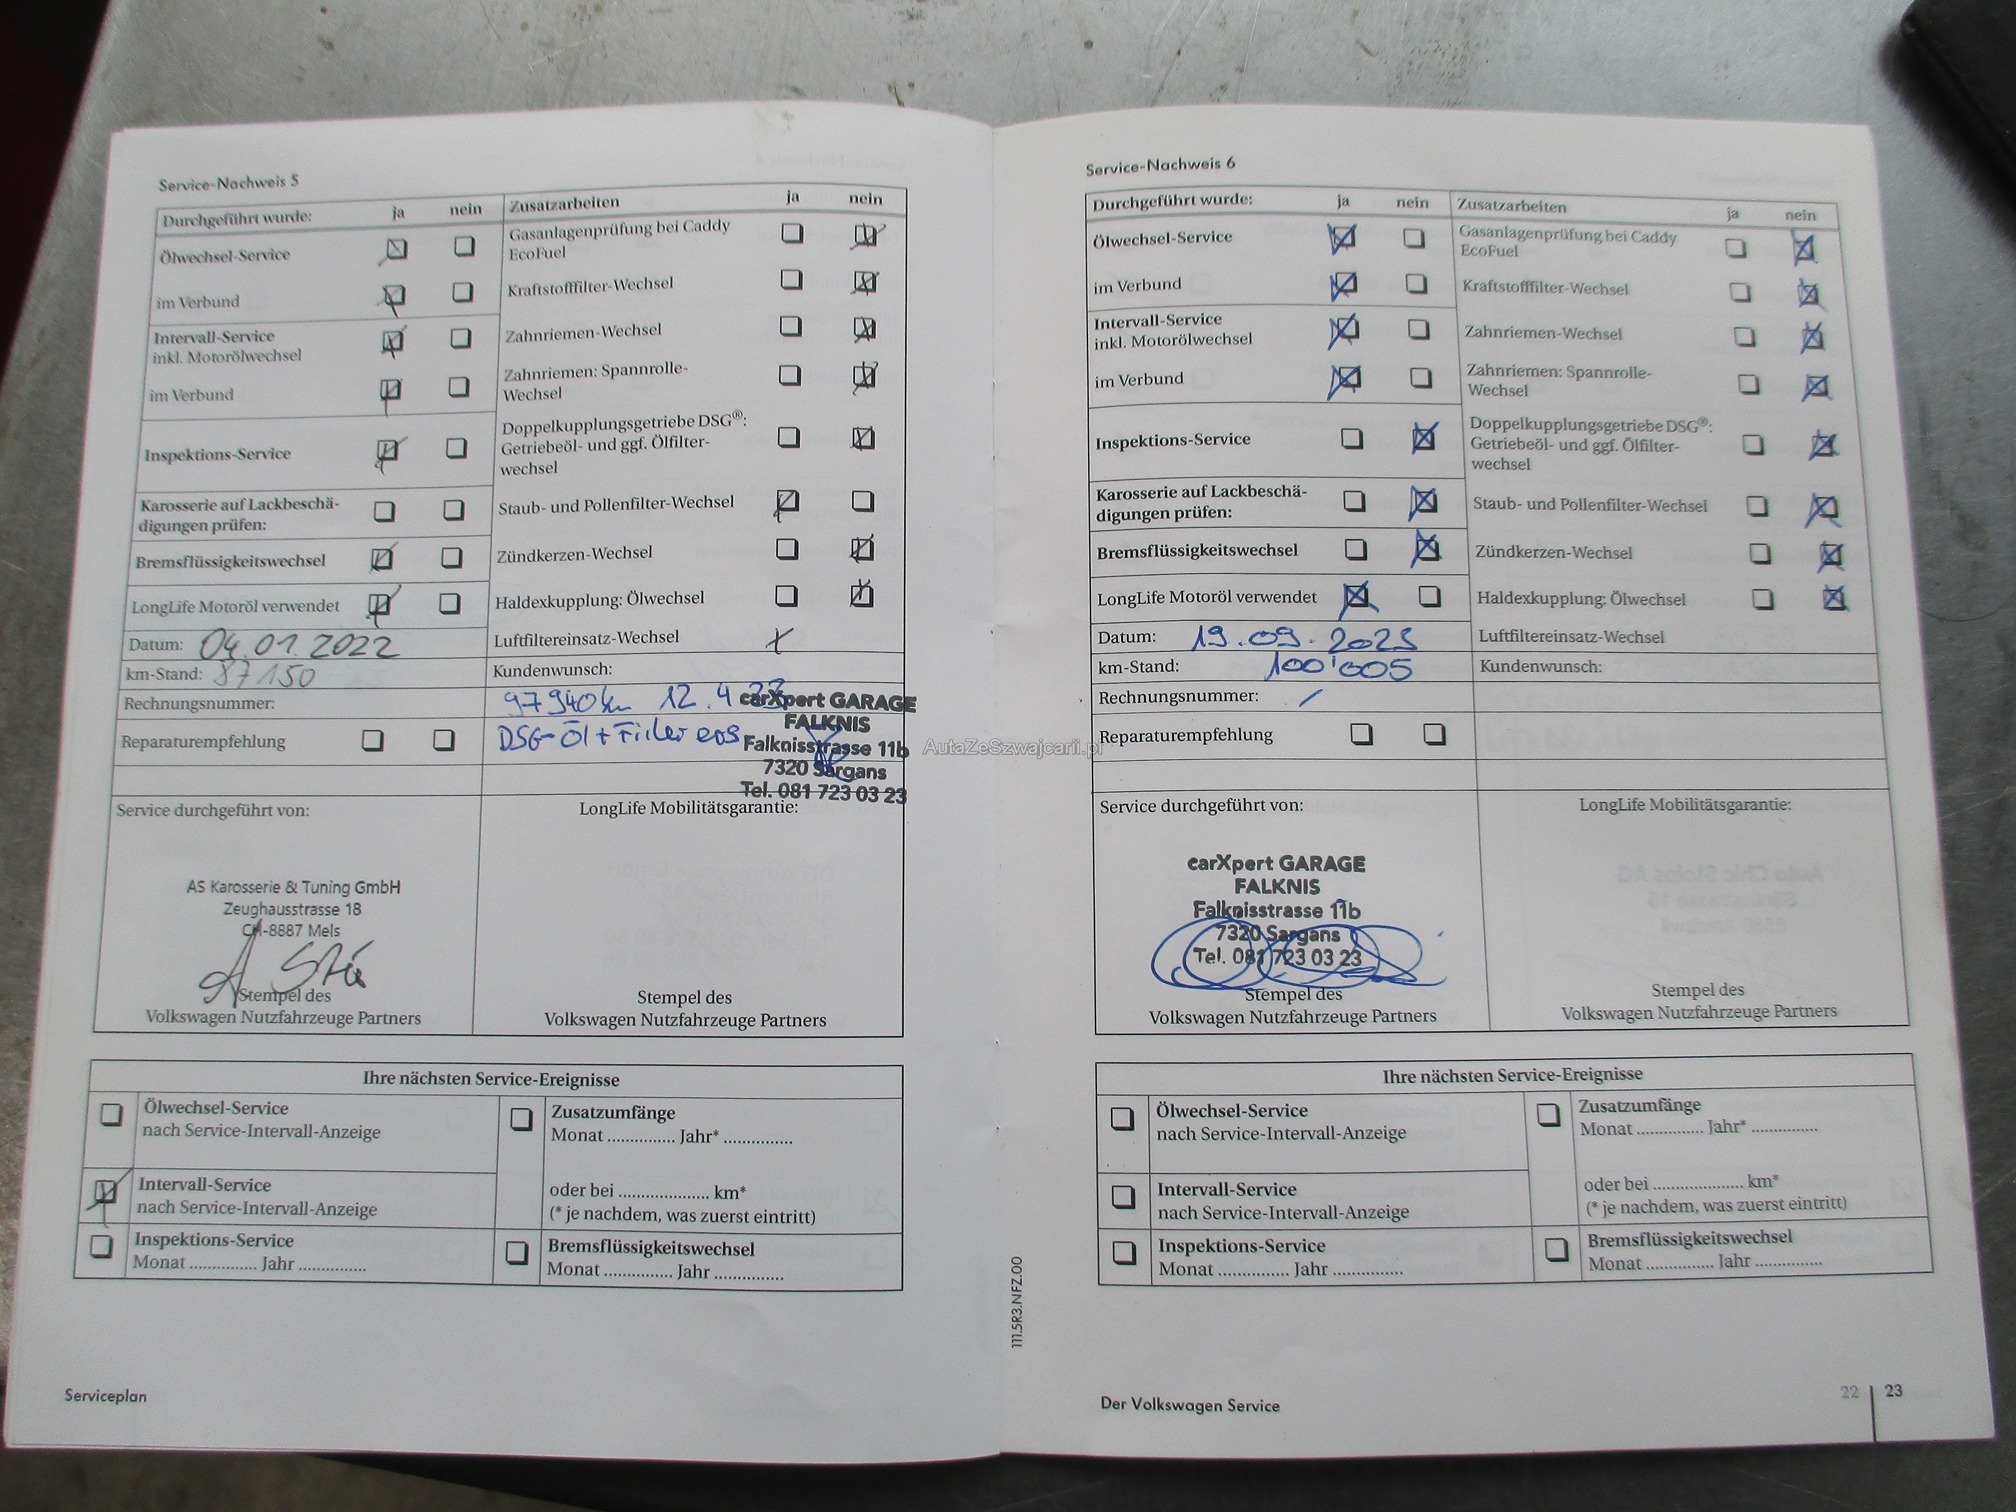 Service-Nachweis 5
Durchgeführt wurde: ja nein
Ölwechsel-Service
im Verbund
Intervall-Service
inkl. Motorölwechsel
im Verbund
Inspektions-Service
Karosserie auf Lackbeschä-
digungen prüfen:
Bremsflüssigkeitswechsel
LongLife Motoröl verwendet
Datum: 04.01.2022
km-Stand: 87150
Rechnungsnummer:
Reparaturempfehlung
Zusatzarbeiten ja nein
Gasanlagenprüfung bei Caddy
EcoFuel
Kraftstofffilter-Wechsel
Zahnriemen-Wechsel
Zahnriemen: Spannrolle-
Wechsel
Doppelkupplungsgetriebe DSG®:
Getriebeöl- und ggf. Ölfilter-
wechsel
Staub- und Pollenfilter-Wechsel
Zündkerzen-Wechsel
Haldexkupplung: Ölwechsel
Luftfiltereinsatz-Wechsel x
Kundenwunsch:
97940km 12.4.23
DSG-Öl + Filter ers
carXpert GARAGE
FALKNIS
Falknisstrasse 11b
7320 Sargans
Tel. 081 723 03 23
Service durchgeführt von:
AS Karosserie & Tuning GmbH
Zeughausstrasse 18
CH-8887 Mels
Stempel des
Volkswagen Nutzfahrzeuge Partners
LongLife Mobilitätsgarantie:
Stempel des
Volkswagen Nutzfahrzeuge Partners
Ihre nächsten Service-Ereignisse
Ölwechsel-Service
nach Service-Intervall-Anzeige
Intervall-Service
nach Service-Intervall-Anzeige
Inspektions-Service
Monat .............. Jahr ..............
Zusatzumfänge
Monat .............. Jahr* ..............
oder bei .................... km*
(* je nachdem, was zuerst eintritt)
Bremsflüssigkeitswechsel
Monat .............. Jahr ..............
Serviceplan
AutaZeSzwajcarii.pl
Service-Nachweis 6
Durchgeführt wurde: ja nein
Ölwechsel-Service
im Verbund
Intervall-Service
inkl. Motorölwechsel
im Verbund
Inspektions-Service
Karosserie auf Lackbeschä-
digungen prüfen:
Bremsflüssigkeitswechsel
LongLife Motoröl verwendet
Datum: 19.09.2023
km-Stand: 100'005
Rechnungsnummer: /
Reparaturempfehlung
Zusatzarbeiten ja nein
Gasanlagenprüfung bei Caddy
EcoFuel
Kraftstofffilter-Wechsel
Zahnriemen-Wechsel
Zahnriemen: Spannrolle-
Wechsel
Doppelkupplungsgetriebe DSG®:
Getriebeöl- und ggf. Ölfilter-
wechsel
Staub- und Pollenfilter-Wechsel
Zündkerzen-Wechsel
Haldexkupplung: Ölwechsel
Luftfiltereinsatz-Wechsel
Kundenwunsch:
Service durchgeführt von:
carXpert GARAGE
FALKNIS
Falknisstrasse 11b
7320 Sargans
Tel. 081 723 03 23
Stempel des
Volkswagen Nutzfahrzeuge Partners
LongLife Mobilitätsgarantie:
Stempel des
Volkswagen Nutzfahrzeuge Partners
Ihre nächsten Service-Ereignisse
Ölwechsel-Service
nach Service-Intervall-Anzeige
Intervall-Service
nach Service-Intervall-Anzeige
Inspektions-Service
Monat .............. Jahr ..............
Zusatzumfänge
Monat .............. Jahr* ..............
oder bei .................... km*
(* je nachdem, was zuerst eintritt)
Bremsflüssigkeitswechsel
Monat .............. Jahr ..............
111.5R3.NFZ.00
Der Volkswagen Service
22 23